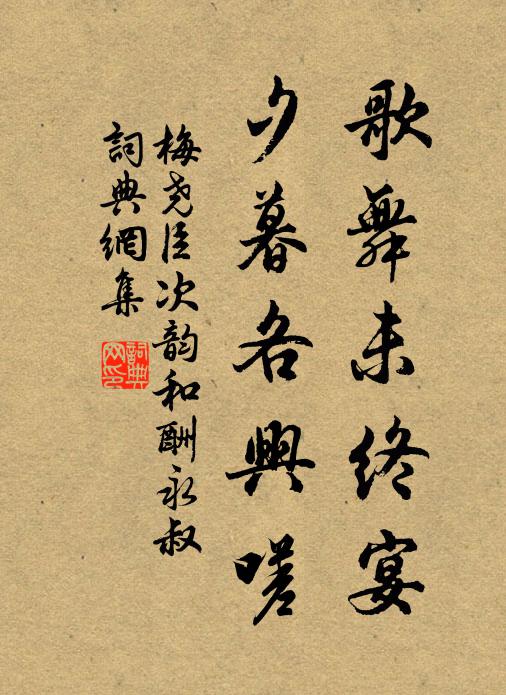 歌舞未終宴
夕暮各興嗟
梅尧臣次韵和酬永叔
詞典網集
詞典网印